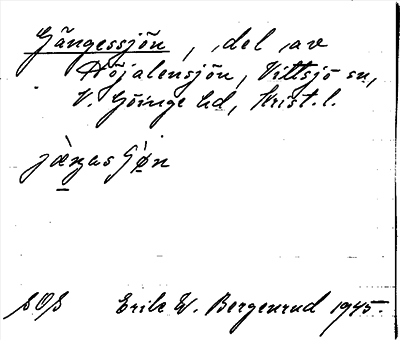 Gängessjön, del av
Höjalensjön, Vittsjö sn,
V. Göinge hd, Krist. l.
SOS Erik W. Bergenrud 1945.